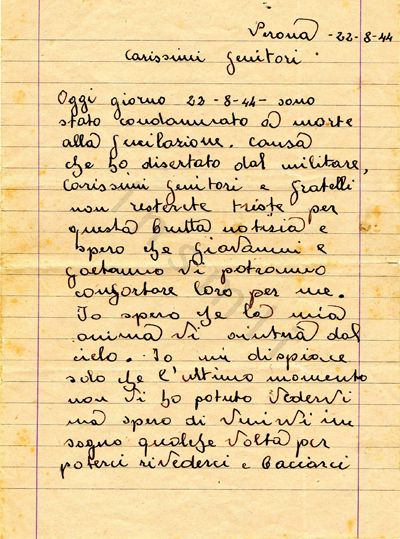 Verona - 22-8-44
Carissimi genitori
Oggi giorno 23-8-44- sono
stato condannato a morte
alla fucilazione. causa
che ho disertato dal militare,
Carissimi genitori e fratelli
non resterite triste per
questa brutta notisia e
spero che giavanni e
gaetanno vi potranno
confortare loro per me.
Io spero che la mia
anima vi aiuterà dal
cielo. Io mi dispiace
solo che l'ultimo momento
non vi ho potuto vedervi
ma spero di venirvi in
sogno qualche volta per
poterci rivederci e baciarci